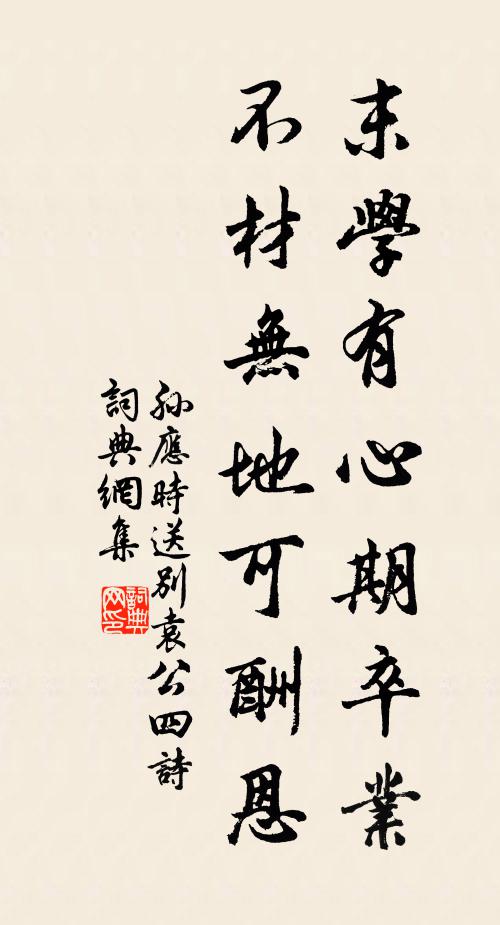 末學有心期卒業
不材無地可酬恩
孫應時送別袁公四詩
詞典網集
詞典
网印